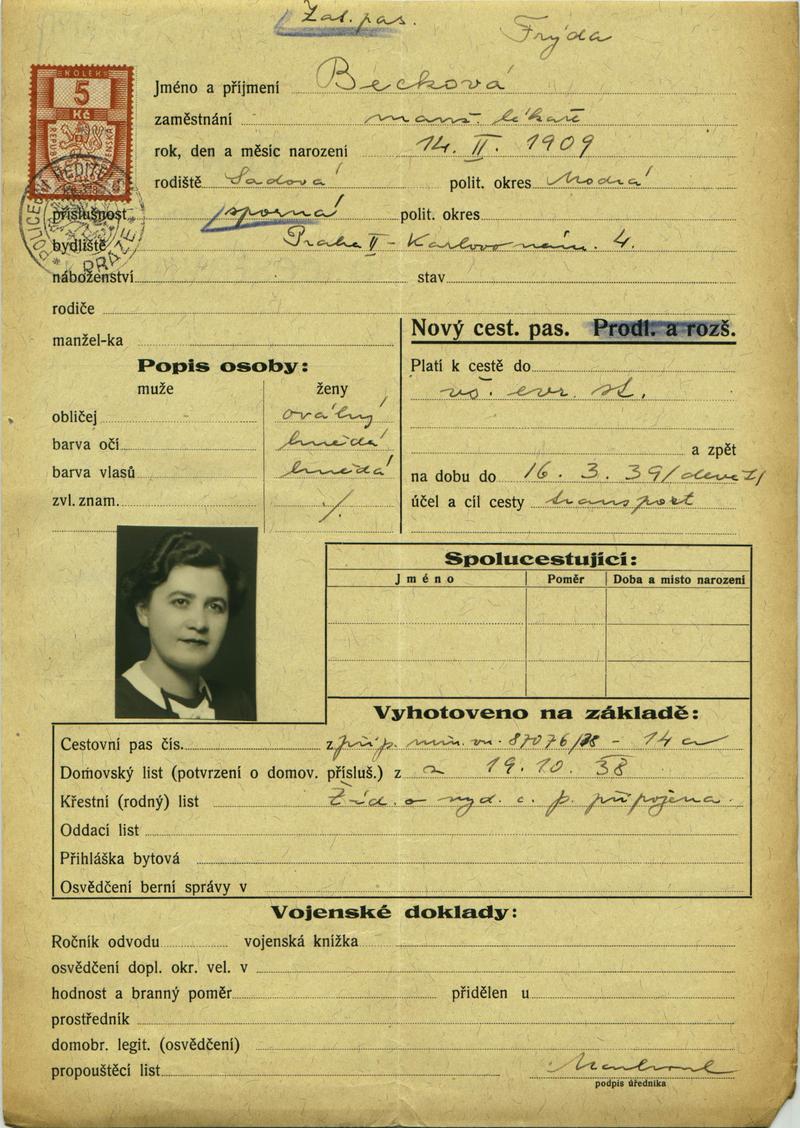 Žal. pas.
Frýda
KOLEK
5
Kč
Jméno a příjmení Becková
zaměstnání manž. lékaře
rok, den a měsíc narození 14. II. 1909
rodiště Sadová polit. okres Modrá
příslušnost sporná polit. okres
bydliště Praha II - Karlovo nám. 4.
náboženství stav
rodiče
manžel-ka
Nový cest. pas. Prodl. a rozš.
Popis osoby:
muže ženy
obličej oválný
barva očí hnědá
barva vlasů hnědá
zvl. znam. ./.
Platí k cestě do
vš. evr. st.
a zpět
na dobu do 16. 3. 39
účel a cíl cesty transport
Spolucestující:
Jméno Poměr Doba a misto narození
Vyhotoveno na základě:
Cestovní pas čís. z příp. min. vn. 87076/38 - 14 a
Domovský list (potvrzení o domov. přísluš.) z 19. 10. 38
Křestní (rodný) list Žád. o vyd. c. p. připojena.
Oddací list
Přihláška bytová
Osvědčení berní správy v
Vojenské doklady:
Ročník odvodu vojenská knížka
osvědčení dopl. okr. vel. v
hodnost a branný poměr přidělen u
prostředník
domobr. legit. (osvědčení)
propouštěcí list
podpis úředníka